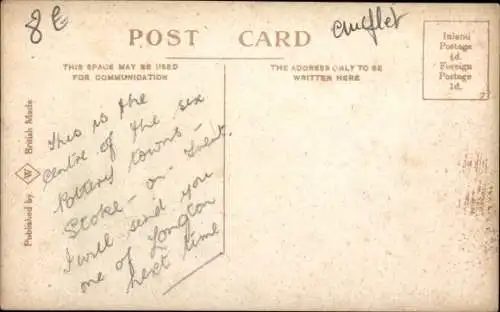 8 €
POST CARD
THIS SPACE MAY BE USED
FOR COMMUNICATION
THE ADDRESS ONLY TO BE
WRITTEN HERE
Inland
Postage
½d.
Foreign
Postage
1d.
Published by W British Made
This is the
Centre of the six
Pottery towns -
Stoke - on Trent.
I will send you
one of Longton
next time